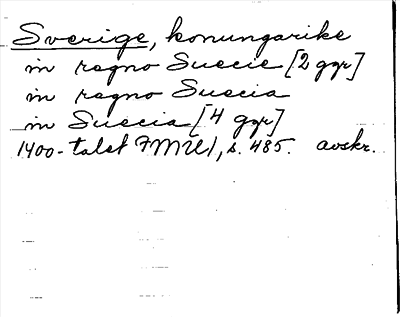 Sverige, konungarike
in regno Suecie [2 ggr]
in regno Suecia
in Suecia [4 ggr]
1400-talet FMU 1, s. 485. avskr.